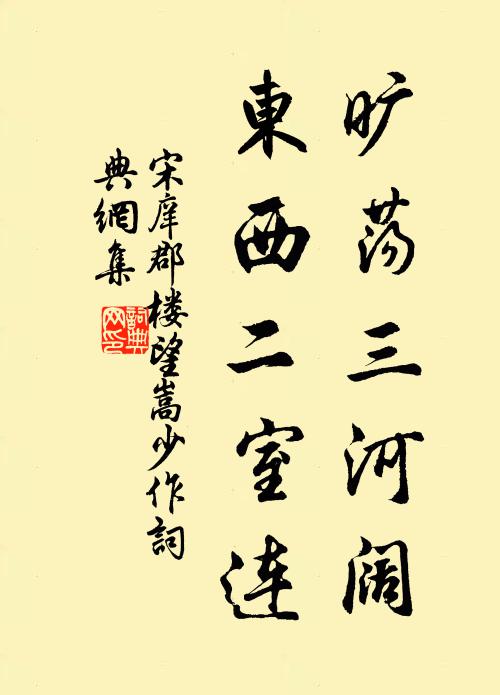 旷荡三河阔
東西二室连
宋庠郡楼望嵩少作詞
典網集
詞典网印